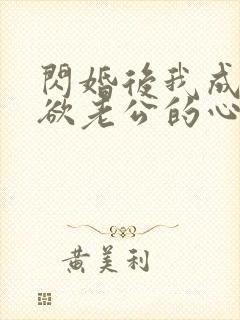 閃婚後我成
欲老公的心
黄美利